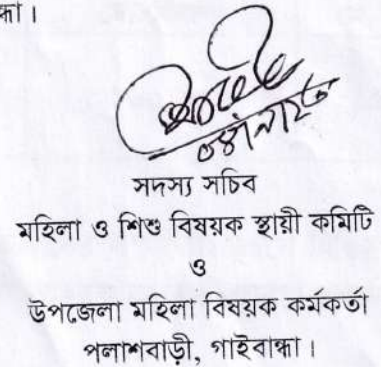 ন্ধা।
সদস্য সচিব
মহিলা ও শিশু বিষয়ক স্থায়ী কমিটি
ও
উপজেলা মহিলা বিষয়ক কর্মকর্তা
পলাশবাড়ী, গাইবান্ধা।